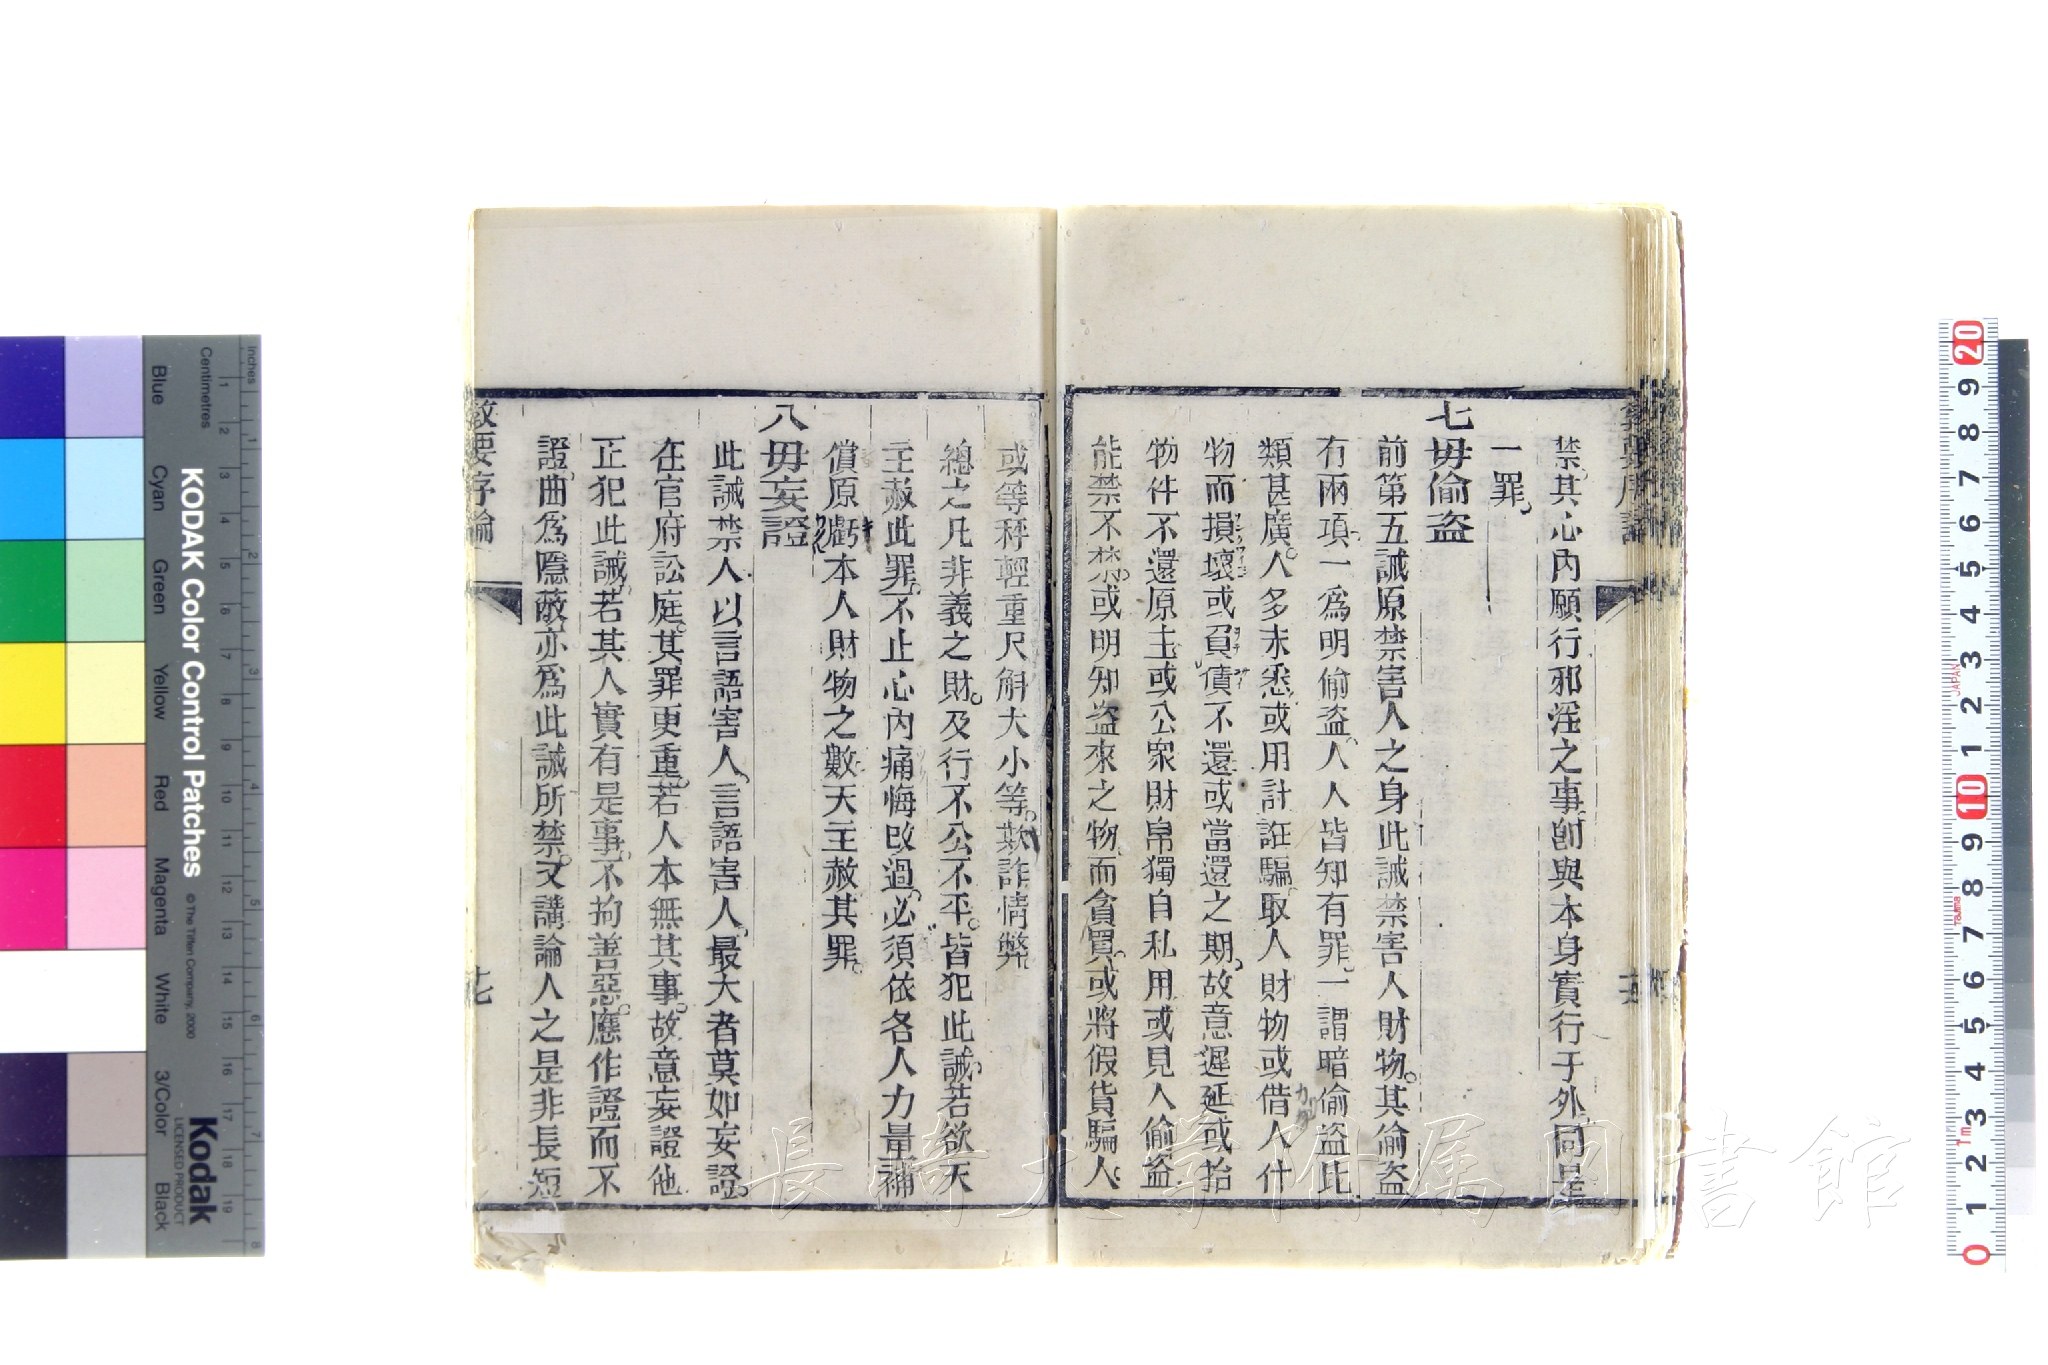 禁。其心內願行邪淫之事。創與本身實行于外。同是
一罪。
七毋偷盗
前第五誡。原禁害人之身。此誡禁害人財物。其偷盗
有兩項。一爲明偷盗。人人皆知有罪。一謂暗偷盗。此
類甚廣。人多未悉。或用計誆騙。取人財物。或借人什
物而損壞。或負債不還。或當還之期。故意遲延。或拾
物件不還原主。或公衆財帛獨自私用。或見人偷盗
能禁不禁。或明知盗來之物。而貪買。或將假貨騙人。
或等秤輕重。尺斛大小等。欺詐情弊。
總之凡非義之財。及行不公不平。皆犯此誡。若欲天
主赦此罪。不止心內痛悔改過。必須依各人力量補
償原虧本人財物之數。天主赦其罪。
八毋妄證
此誡禁人以言語害人。言語害人。最大者莫如妄證。
在官府訟庭。其罪更重。若人本無其事。故意妄證他
正犯此誡。若其人實有是事。不拘善惡。應作證而不
證。曲爲隱蔽。亦爲此誡所禁。又講論人之是非長短
教要序論
十七
KODAK Color Control Patches
© The Tiffen Company, 2000
Kodak
LICENSED PRODUCT
Inches
Centimetres
Blue
Cyan
Green
Yellow
Red
Magenta
White
3/Color
Black
長崎大学附属図書館